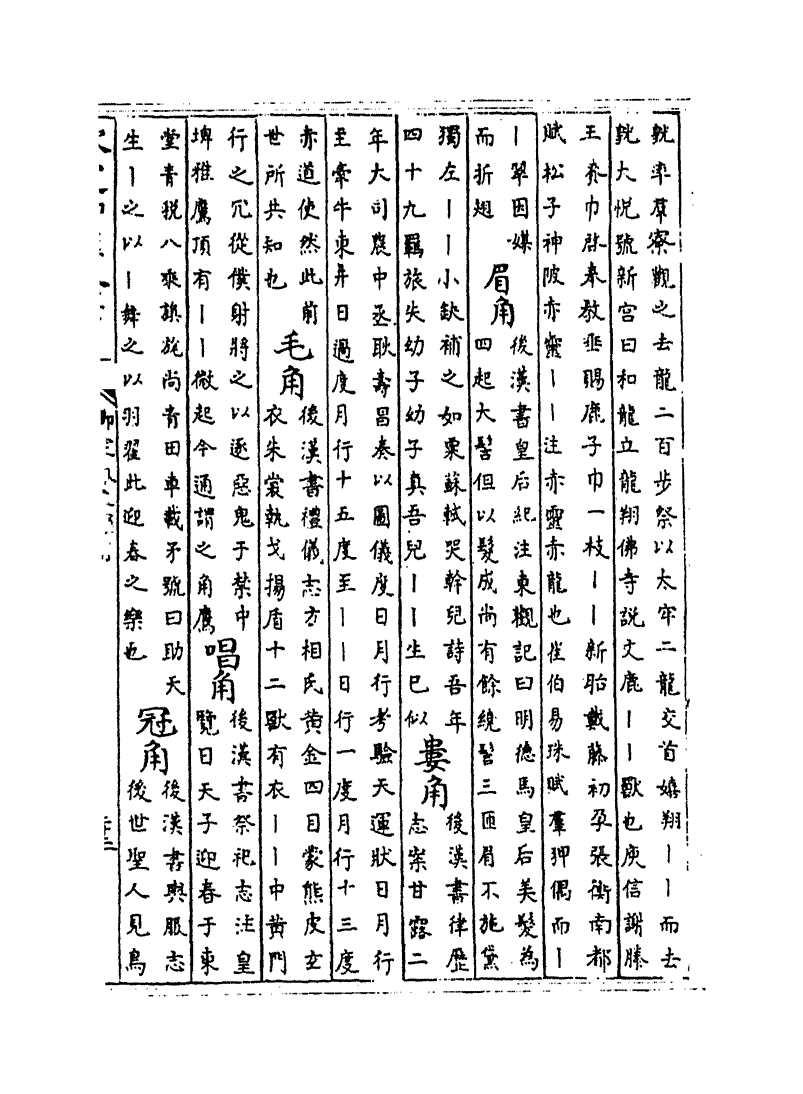 皝率羣寮觀之去龍二百步祭以太牢二龍交首嬉翔丨丨而去
皝大悅號新宮曰和龍立龍翔佛寺說文鹿丨丨獸也庾信謝滕
王賚巾啟奉教垂賜鹿子巾一枝丨丨新胎戴藤初孕張衡南都
賦松子神陂赤靈丨丨注赤靈赤龍也崔伯易珠賦羣狎偶而丨
丨翠因媒
而折翅
眉角
後漢書皇后紀注東觀記曰明德馬皇后美髮為
四起大髻但以髮成尚有餘繞髻三匝眉不施黛
獨左丨丨小缺補之如粟蘇軾哭幹兒詩吾年
四十九羈旅失幼子幼子真吾兒丨丨生已似
婁角
後漢書律歷
志案甘露二
年大司農中丞耿壽昌奏以圖儀度日月行考驗天運狀日月行
至牽牛東井日過度月行十五度至丨丨日行一度月行十三度
赤道使然此前
世所共知也
毛角
後漢書禮儀志方相氏黃金四目蒙熊皮玄
衣朱裳執戈揚盾十二獸有衣丨丨中黃門
行之冗從僕射將之以逐惡鬼于禁中
埤雅鷹頂有丨丨微起今通謂之角鷹
唱角
後漢書祭祀志注皇
覽曰天子迎春于東
堂青稅八乘旗旄尚青田車載矛號曰助天
生丨之以丨舞之以羽翟此迎春之樂也
冠角
後漢書輿服志
後世聖人見鳥